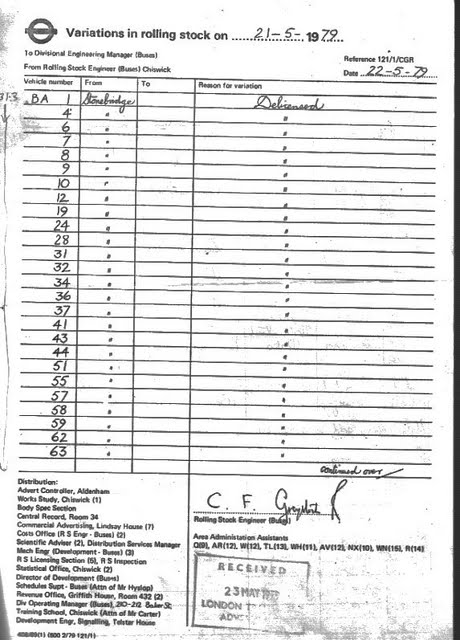 Variations in rolling stock on 21-5-1979
To Divisional Engineering Manager (Buses)
From Rolling Stock Engineer (Buses) Chiswick
Reference 121/1/CGR
Date 22-5-79
Vehicle number From To Reason for variation
BA 1 Stonebridge Delicensed
4 " "
6 " "
7 " "
8 " "
9 " "
10 " "
12 " "
19 " "
24 " "
28 " "
31 " "
32 " "
34 " "
36 " "
37 " "
41 " "
43 " "
44 " "
51 " "
55 " "
57 " "
58 " "
59 " "
62 " "
63 " "
continued over
Distribution:
Advert Controller, Aldenham
Works Study, Chiswick (1)
Body Spec Section
Central Record, Room 34
Commercial Advertising, Lindsay House (7)
Costs Office (R S Engr - Buses) (2)
Scientific Adviser (2), Distribution Services Manager
Mech Engr (Development - Buses) (3)
R S Licensing Section (5), R S Inspection
Statistical Office, Chiswick (2)
Director of Development (Buses)
Schedules Supt - Buses (Attn of Mr Hyslop)
Revenue Office, Griffith House, Room 432 (2)
Div Operating Manager (Buses), 210-212 Baker St;
Training School, Chiswick (Attn of Mr Carter)
Development Engr, Signalling, Telstar House
C. F.
Rolling Stock Engineer (Buses)
Area Administration Assistants
Q(9), AR(12), W(12), TL(13), WH(11), AV(12), NX(10), WN(15), R(14)
RECEIVED
23 MAY
LONDON T
ADV